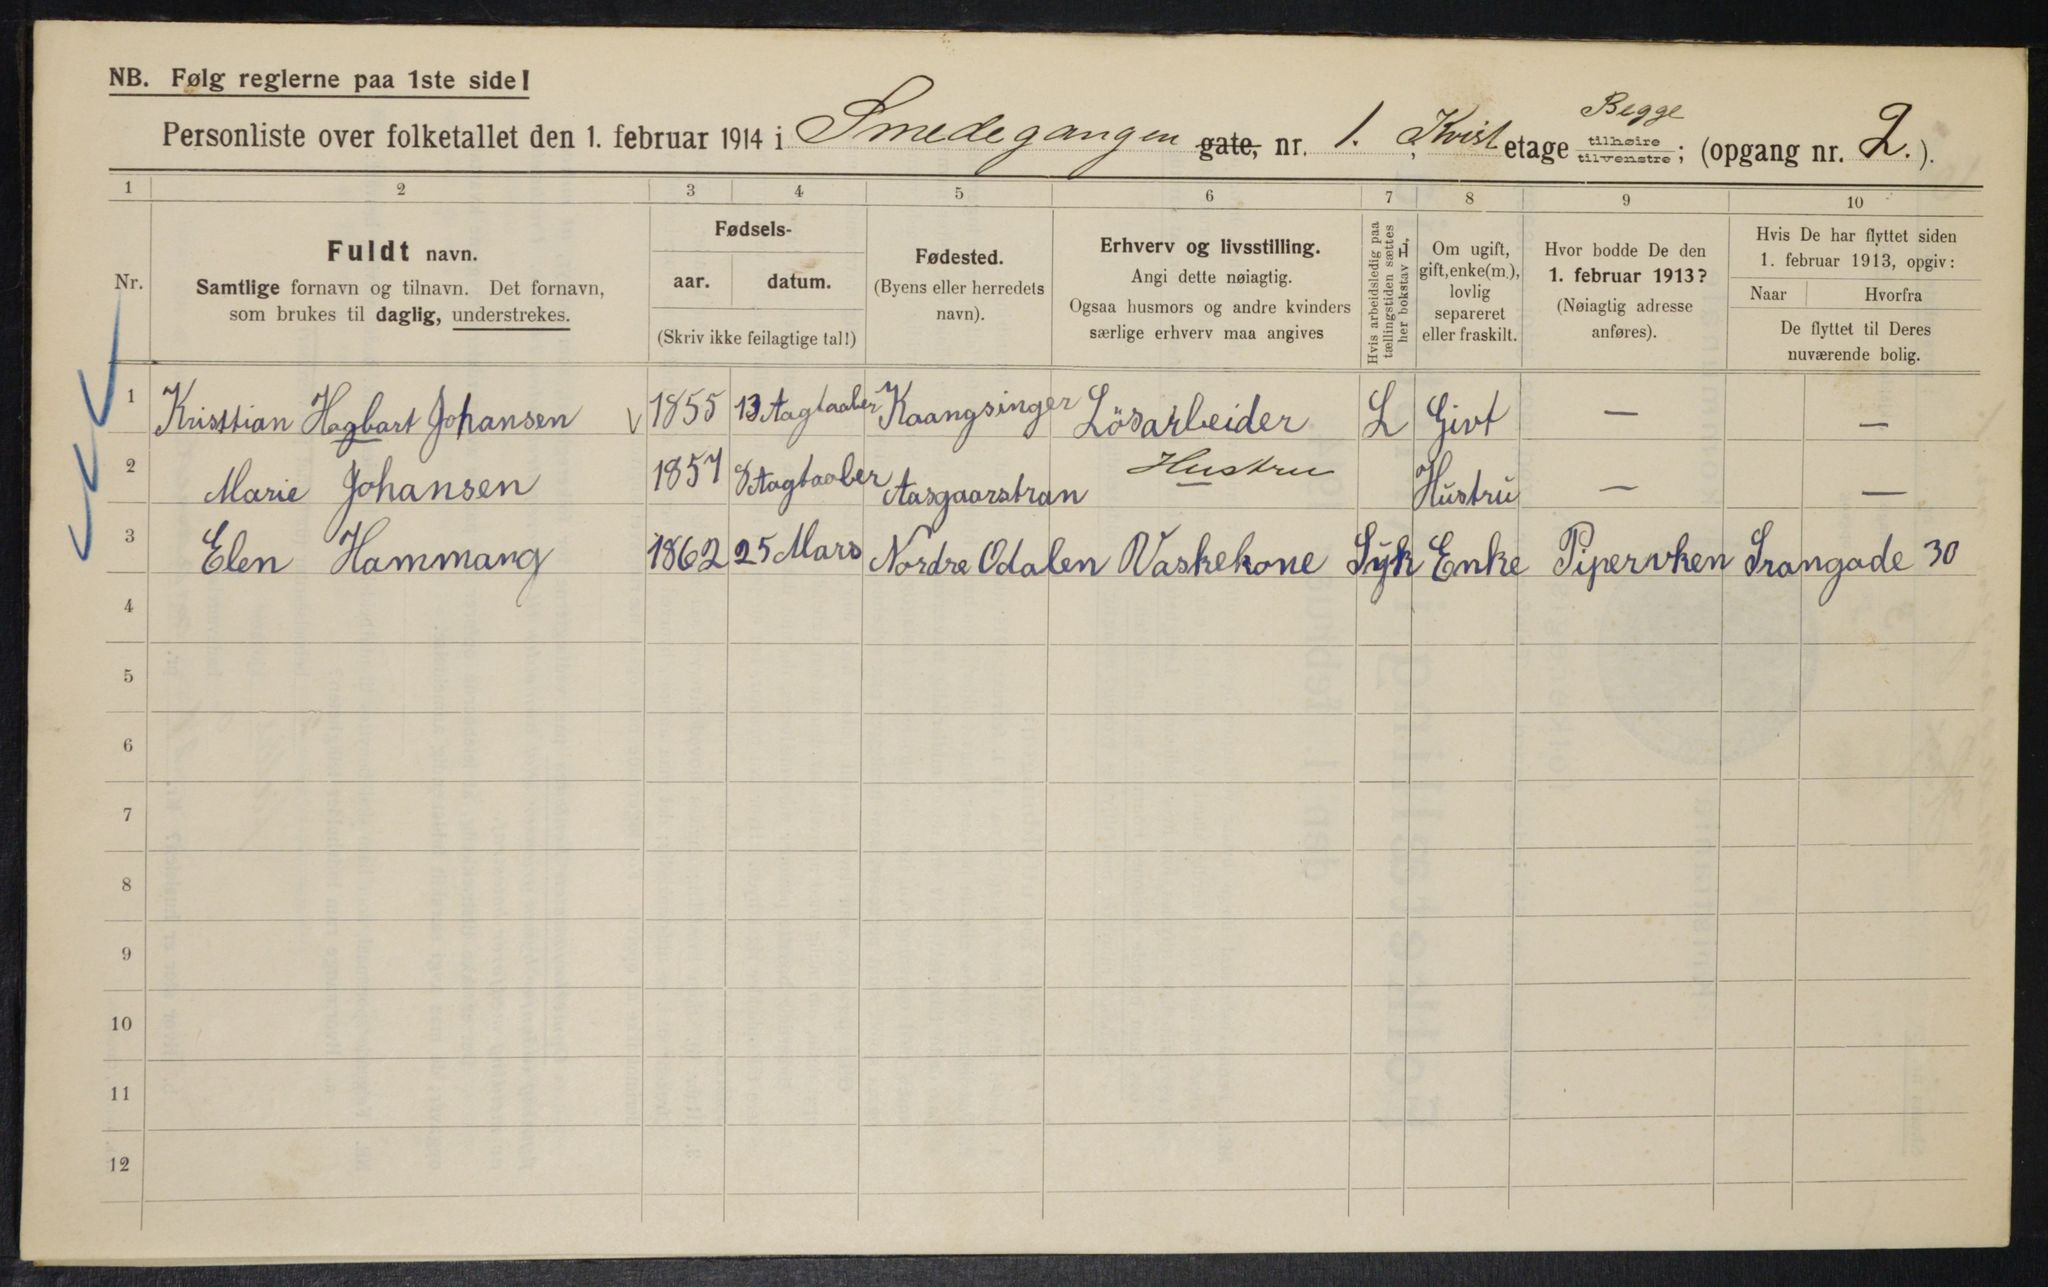 NB. Følg reglerne paa 1ste side!
Personliste over folketallet den 1. februar 1914 i Smedegangen gate, nr. 1. Kvist etage Begge tilhøire tilvenstre; (opgang nr. 2.).
1 2 3 4 5 6 7 8 9 10
Nr.
Fuldt navn.
Samtlige fornavn og tilnavn. Det fornavn,
som brukes til daglig, understrekes.
Fødsels-
aar. datum.
(Skriv ikke feilagtige tal!)
Fødested.
(Byens eller herredets
navn).
Erhverv og livsstilling.
Angi dette nøiagtig.
Ogsaa husmors og andre kvinders
særlige erhverv maa angives
Hvis arbeidsledig paa
tællingstiden sættes
her bokstav L.
Om ugift,
gift, enke(m.),
lovlig
separeret
eller fraskilt.
Hvor bodde De den
1. februar 1913?
(Nøiagtig adresse
anføres).
Hvis De har flyttet siden
1. februar 1913, opgiv:
Naar Hvorfra
De flyttet til Deres
nuværende bolig.
1 Kristtian Hagbart Johansen 1855 13 Aagtaaber Kaangsinger Lösarbeider L Givt — —
2 Marie Johansen 1857 8 Aagtaaber Aasgaarstran Hustru Hustru — —
3 Elen Hammang 1862 25 Mars Nordre Odalen Vaskekone Syk Enke Pipervken Srangade 30
4
5
6
7
8
9
10
11
12